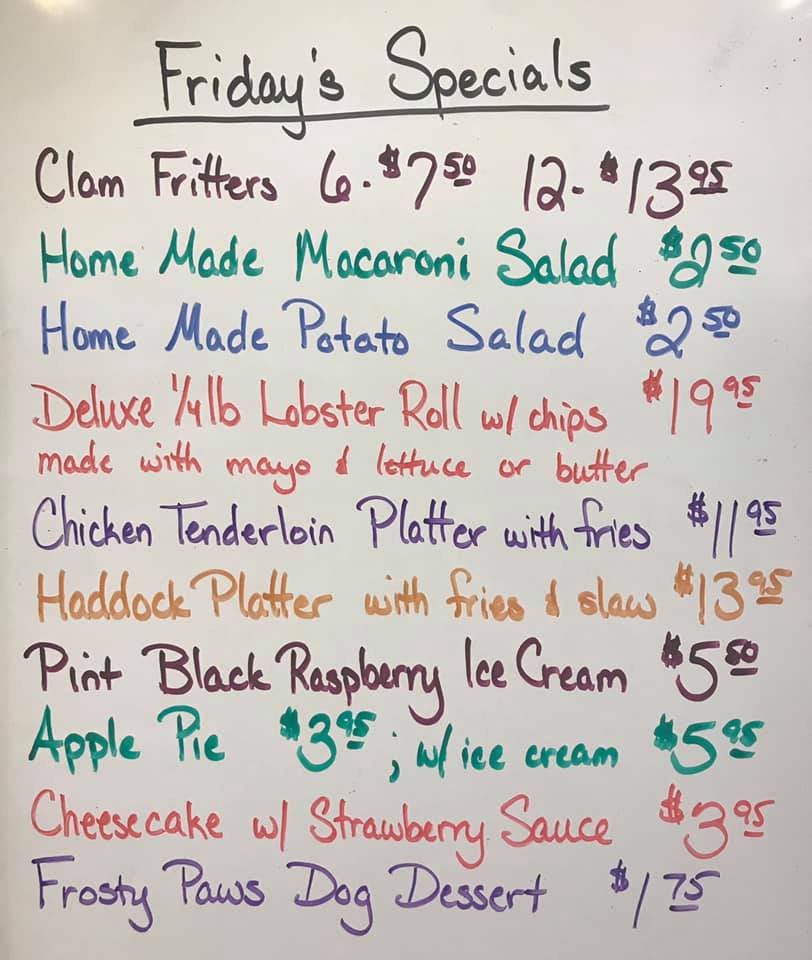 Friday's Specials
Clam Fritters 6-$7.50 12-$13.95
Home Made Macaroni Salad $2.50
Home Made Potato Salad $2.50
Deluxe 1/4 lb Lobster Roll w/ chips $19.95
made with mayo & lettuce or butter
Chicken Tenderloin Platter with fries $11.95
Haddock Platter with fries & slaw $13.95
Pint Black Raspberry Ice Cream $5.50
Apple Pie $3.95; w/ ice cream $5.95
Cheesecake w/ Strawberry Sauce $3.95
Frosty Paws Dog Dessert $1.75